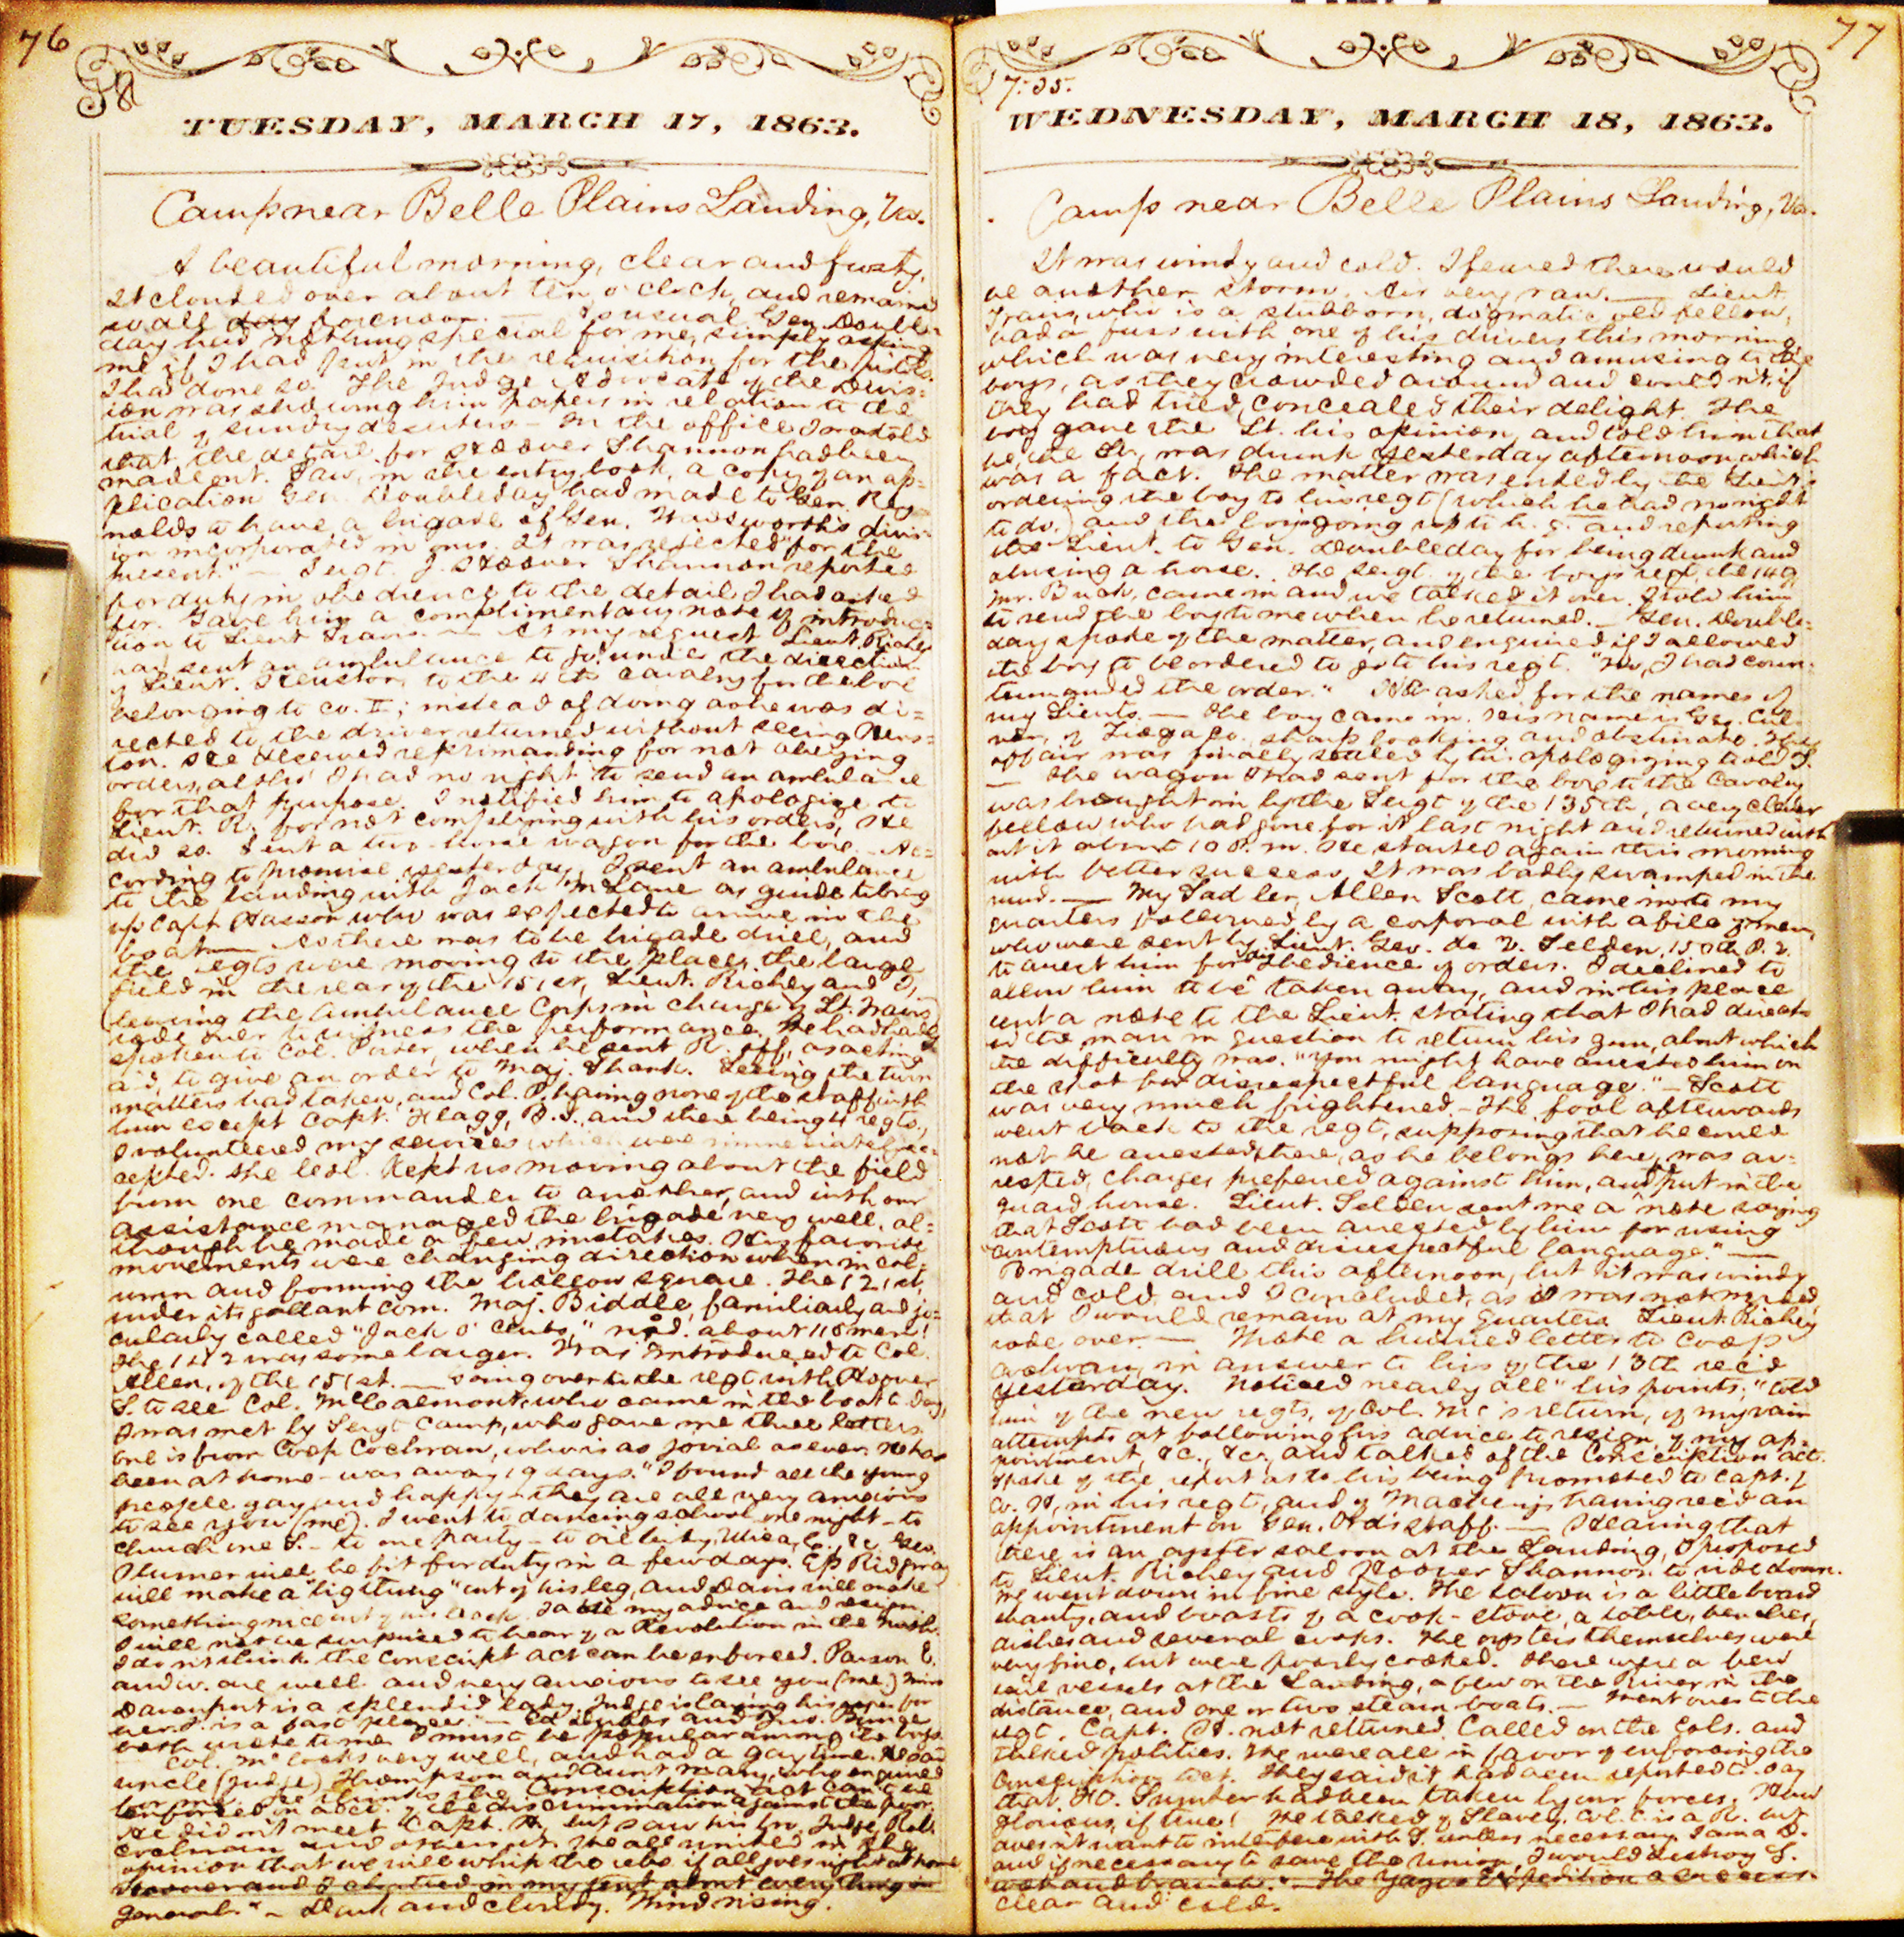 76
8
TUESDAY, MARCH 17, 1863.
Camp near Belle Plains Landing, Va.
A beautiful morning, clear and frosty.
It clouded over about ten o'clock, and remained
so all day forenoon. — As usual Gen. Double=
day had nothing special for me, simply asking
me if I had sent in the requisition for the pistols.
I had done so. The Judge Advocate of the Divis=
ion was showing him papers in relation to the
trial of sundry deserters — In the office I was told
that the detail for Hoover Shannon had been
made out. Saw, in the entry book, a copy of an ap=
plication Gen. Doubleday had made to Gen. Rey=
nolds to have a brigade of Gen. Wadsworth's divis=
ion incorporated in ours. It was rejected "for the
present." — Sergt. J. Hoover Shannon reported
for duty in obedience to the detail I had asked
for. Gave him a complimentary note of introduc=
tion to Lieut Trans. — At my request Lieut. Richey
had sent an ambulance to go under the direction
of Lieut. to the 4th Cavalry for the box
belonging to co. ; instead of doing as he was di=
rected to, the driver returned without seeing
He deserved reprimanding for not obeying
orders, altho' I had no right to send an ambulance
for that purpose. I notified him to apologize to
Lieut. R. for not complying with his orders, He
did so. Sent a two-horse wagon for the box. — Ac=
cording to promise yesterday, I sent an ambulance
to the landing with Jack as guide to bring
up Capt Hasson who was expected to arrive in the
boat — As there was to be brigade drill, and
the regts were moving to the place, the large
field in the rear of the 151st, Lieut. Richey and I,
(leaving the Ambulance Corps in charge of Lt. Trans)
rode over to witness the performance. We had hardly
spoken to Col. Porter, when he sent R. off, as acting
aid, to give an order to Maj. Seeing the turn
matters had taken, and Col. P. having none of the staff with
him except Capt. Flagg, B. I. and there being 4 regts.,
I volunteered my services which were immediately ac=
cepted. The Col. kept us moving about the field
from one commander to another, and with our
assistance managed the brigade very well, al=
though he made a few mistakes. His favorite
movements were changing direction when in col=
umn and forming the hollow square. The 121st,
under its gallant com. Maj. Biddle, familiarly and jo=
cularly called "Jack o' Clubs," n'b'd. about 118 men!
The 142 was some larger. Was introduced to Col.
Allen, of the 151st. — Going over to the regt with Hoover
S. to see Col. McCalmont, who came in the boat to day,
I was met by Sergt Camp, who gave me three letters
one is from Coop Cochran, who is as jovial as ever. He has
been at home — was away 19 days. "I found all the young
people gay and happy — they are all very anxious
to see you (me). I went to dancing school one night — to
church one S. — to one party — to oil Geo.
Plumer will be fit for duty in a few days. Ridgway
will make a "big thing" out of his leg, and Davis will make
something nice out of his Take my advice and resign.
I will not be surprised to hear of a Revolution in the North.
I do n't think the conscript act can be enforced. Parson E.
and w. are well and very anxious to see you (me) Miss
Davenport is a splendid lady. Judge is laying his for
her. S. is a fast
both wrote to me I must be popular among the boys.
Col. Mc looks very well, and had a gay time. He saw
uncle (Judge) Thompson and Aunt Mary, who enquired
for me. He thinks the Conscription act can't be
enforced on acct. of the discrimination against the poor.
He did n't meet Capt. H, but saw his bro. Judge, Robt.
Cochran and others. We all united in the
opinion that we will whip the rebs if all goes right at home
Hoover and I chatted in my tent about everything in
general." — Dark and cloudy. Wind rising.
77
7:35.
WEDNESDAY, MARCH 18, 1863.
Camp near Belle Plains Landing, Va.
It was windy and cold. I feared there would
be another storm. Air very raw. — Lieut.
Trans, who is a stubborn, dogmatic old fellow,
had a fuss with one of his drivers this morning,
which was very interesting and amusing to the
boys, as they crowded around and could n't, if
they had tried, concealed their delight. The
boy gave the Lt. his opinion, and told him that
he, the Lt., was drunk yesterday afternoon which
was a fact. The matter was ended by the Lieut's
ordering the boy to his regt (which he had no right
to do.) and the boy's going up to h. q. and reporting
the Lieut. to Gen. Doubleday for being drunk and
abusing a horse. The sergt. of the boy's regt, the 149,
Mr. Bush, came in and we talked it over. I told him
to send the boy to me when he returned. — Gen. Double=
day spoke of the matter, and enquired if I allowed
the boy to be ordered to go to his regt. "No, I had coun=
termanded the order." He asked for the names of
my Lieuts. — The boy came in. His name is Geo. Cul=
ver, of Tioga co. sharp looking and obstinate. The
affair was finally settled by his apologizing to old T.
— The wagon I had sent for the box to the Cavalry
was brought in by the Sergt of the 135th, a very clever
fellow who had gone for it last night and returned with=
out it about 10 P. M. He started again this morning
with better success. It was badly swamped in the
mud. — My Sadler, Allen Scott, came into my
quarters followed by a corporal with a file of men,
who were sent by Lieut. Geo. de V. Selden, 150th P. V.
to arrest him for disobedience of orders. I declined to
allow him to be taken away, and in his place
sent a note to the Lieut. stating that I had direct=
ed the man in question to return his gun, about which
the difficulty was. "You might have arrested him on
the spot for disrespectful language." — Scott
was very much frightened. — The fool afterwards
went back to the regt, supposing that he could
not be arrested there, as he belongs here, was ar=
rested, charges preferred against him, and put in the
guard house. Lieut. Selden sent me a note saying
that Scott had been arrested by him for using
"contemptuous and disrespectful language." —
Brigade drill this afternoon, but it was windy
and cold, and I concluded, as I was not needed
that I would remain at my quarters. Lieut. Richey
rode over. — Wrote a hurried letter to Coop
Cochran, in answer to his of the 13th rec'd
yesterday. Noticed nearly all "his points;" told
him of the new regts, of Col. Mc's return, of my vain
attempts at following his advice to resign, of my ap=
pointment, &c., &c., and talked of the Conscription act.
Spoke of the report as to his being promoted to Capt. of
Co. H, in his regt, and of having rec'd an
appointment on Gen. Ord's staff. — Hearing that
there is an oyster saloon at the Landing, I proposed
to Lieut. Richey and Hoover Shannon to ride down.
We went down in fine style. The saloon is a little board
shanty, and boasts of a cook-stove, a table, benches,
dishes and several cooks. The oysters themselves were
very fine, but were poorly cooked. There were a few
sail vessels at the Landing, a few on the River in the
distance, and one or two steam-boats. — Went over to the
regt. Capt. H. not returned. Called on the Cols. and
talked politics. We were all in favor of enforcing the
Conscription Act. They said it had been reported to-day
that Ft. Sumter had been taken by our forces. How
glorious, if true! We talked of Slavery. Col. C. is a R. but
does n't want to interfere with S. unless necessary. I am a D.
and if necessary to save the Union, I would destroy S.
root and branch." — The Yazoo Expedition a success.
Clear and cold.